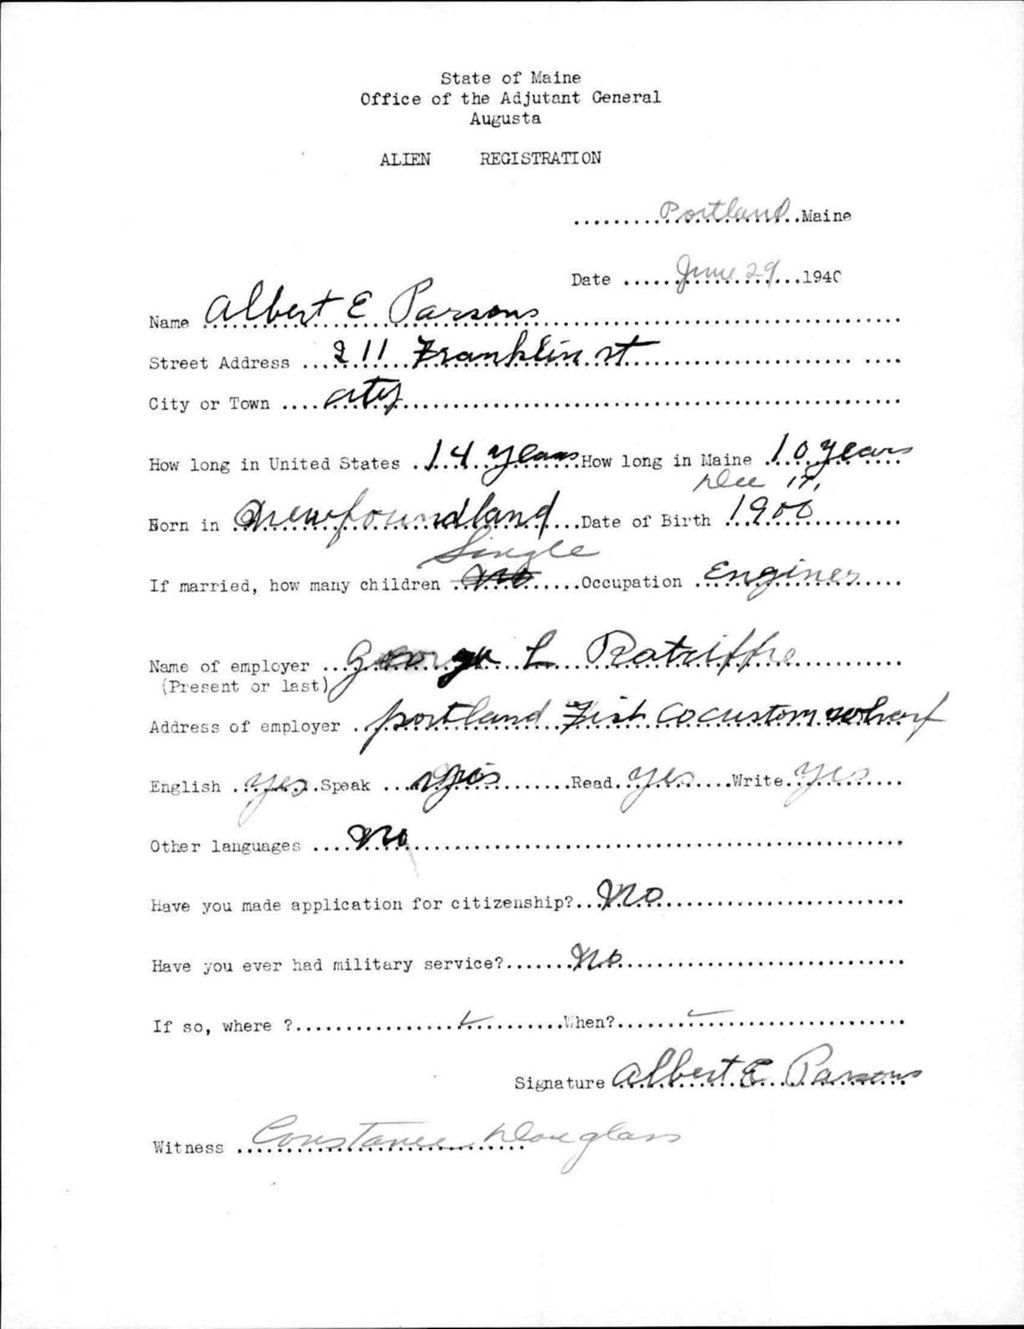 State of Maine
Office of the Adjutant General
Augusta
ALIEN REGISTRATION
.........Portland..Maine
Date ......June 29...1940
Name Albert E Parsons
Street Address ...211 Franklin st
City or Town ....city
How long in United States .14 years.How long in Maine .10 years
Dec 17,
Born in Newfoundland...Date of Birth .1900
Single
If married, how many children .No......Occupation .Enginer
Name of employer ...George L Ratcliffe
(Present or last)
Address of employer ..portland Fish co custom wharf
English .yes..Speak ...yes.......Read.yes....Write.yes
Other languages ....no
Have you made application for citizenship?..No
Have you ever had military service?.......No
If so, where ?..........................When?..........................
Signature Albert E. Parsons
Witness Constance Douglass